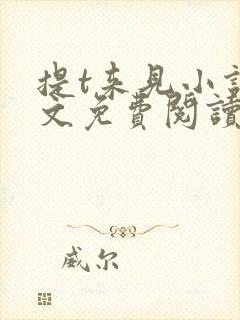 提t来見小說
文免費閱讀
威尔